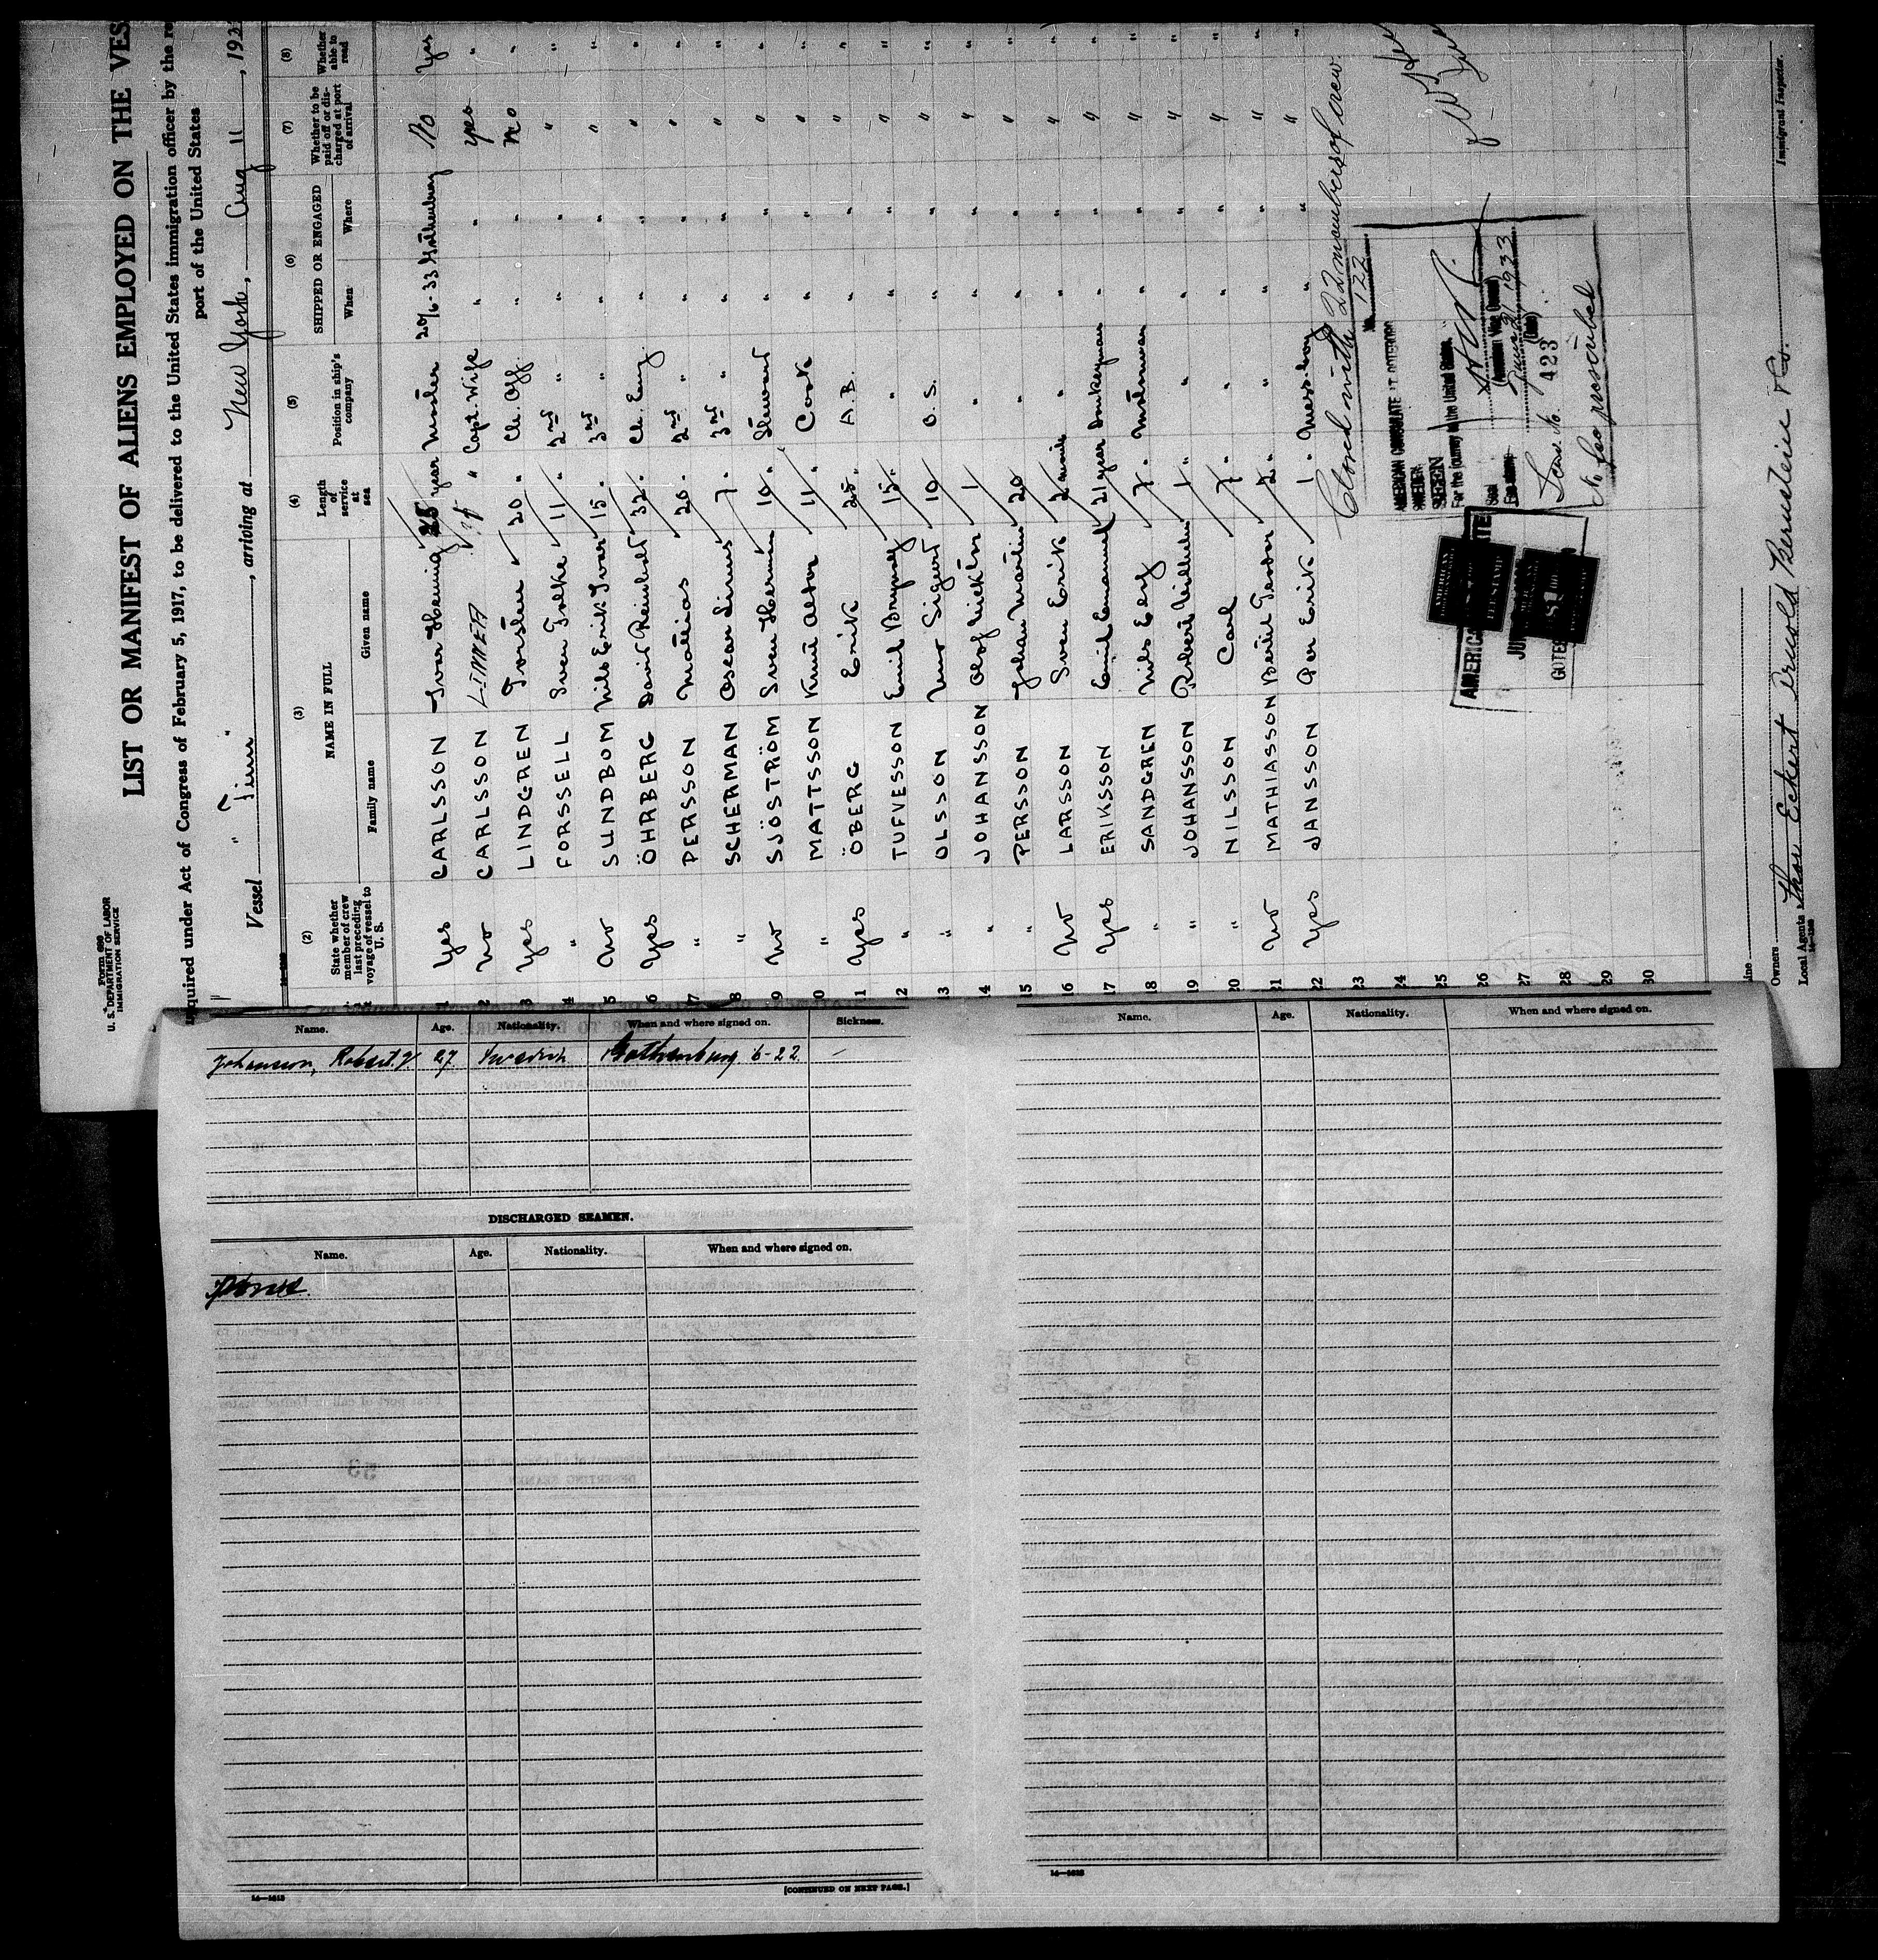 Form 689
U. S. DEPARTMENT OF LABOR
IMMIGRATION SERVICE
LIST OR MANIFEST OF ALIENS EMPLOYED ON THE VES
quired under Act of Congress of February 5, 1917, to be delivered to the United States immigration officer by the re
port of the United States
Vessel "Timi" , arriving at New York, Aug 11 , 193
(2) (3) (4) (5) (6) (7) (8)
State whether member of crew last preceding voyage of vessel to U. S. NAME IN FULL Length of service at sea Position in ship's company SHIPPED OR ENGAGED Whether to be paid off or discharged at port of arrival Whether able to read
Family name Given name When Where
1 Yes CARLSSON Ivar Henning 25 years Master 20/6-33 Gothenburg No Yes
2 No CARLSSON LINNEA " Capt. Wife " " yes "
3 Yes LINDGREN Torsten 20 " Ch. Off. " " No "
4 " FORSSELL Sven Folke 11 " 2nd " " " " "
5 No SUNDBOM Nils Erik Ivar 15 " 3rd " " " " "
6 Yes ÖHRBERG David Reinhold 32 " Ch. Eng. " " " "
7 " PERSSON Mattias 20 " 2nd " " " " "
8 " SCHERMAN Oscar Linus 7 " 3rd " " " " "
9 No SJÖSTRÖM Sven Herman 10 " Steward " " " "
10 " MATTSSON Knut Alton 11 " Cook " " " "
11 Yes ÖBERG Erik 25 " A.B. " " " "
12 " TUFVESSON Emil Brynolf 15 " " " " " "
13 " OLSSON Uno Sigurd 10 O.S. " " " "
14 " JOHANSSON Olof Viktor 1 " " " " "
15 " PERSSON Johan Martin 20 " " " " "
16 No LARSSON Sven Erik 2 " " " " "
17 Yes ERIKSSON Emil Emanuel 21 year Donkeyman " " " "
18 " SANDGREN Nils Eely 7 " Motorman " " " "
19 " JOHANSSON Robert Vilhelm 1 " " " " " "
20 " NILSSON Carl 7 " " " " " "
21 No MATHIASSON Bertil 2 " " " " " "
22 Yes JANSSON Per Erik 1 " Mess-boy " " " "
23
24
25
26
27
28
29
30
Closed with 22 members of crew
No. 122
AMERICAN CONSULATE AT GOTEBORG
SWEDEN
SEEN
For the journey to the United States.
Seal
June 21 1933
(Date)
423
No fee prescribed
AMERICAN
JUN
GOTE
Owners
Local Agents Thor Eckert Arnold Bernstein & Co.
Immigrant Inspector.
Name. Age. Nationality. When and where signed on. Sickness.
Johansson, Robert V. 27. Swedish Gothenburg 6-22. —
DISCHARGED SEAMEN.
Name. Age. Nationality. When and where signed on.
None.
14—1613
[CONTINUED ON NEXT PAGE.]
Name. Age. Nationality. When and where signed on.
14—1613